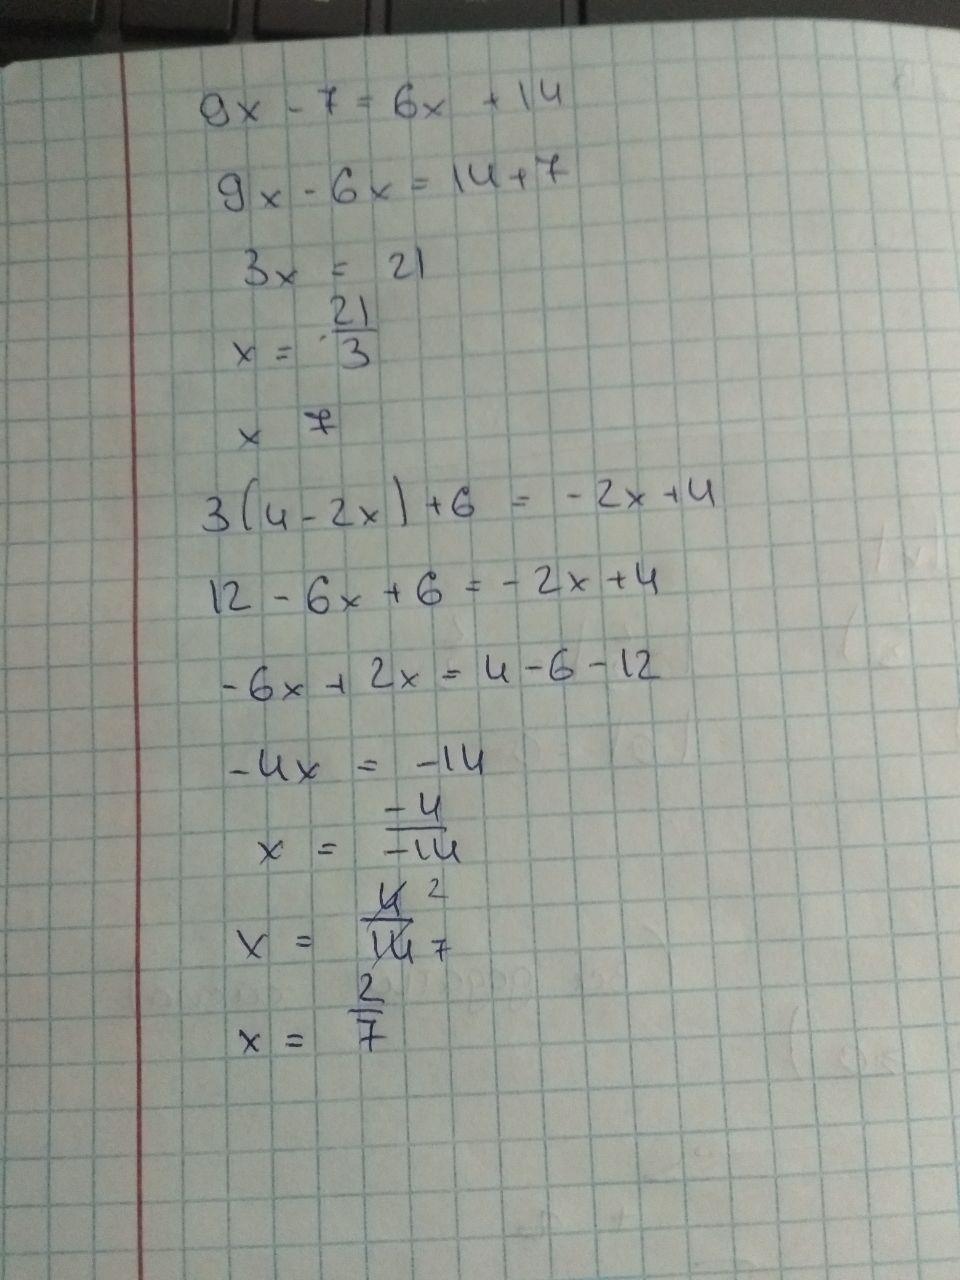 9x - 7 = 6x + 14
9x - 6x = 14 + 7
3x = 21
x = 21/3
x 7
3(4 - 2x) + 6 = -2x + 4
12 - 6x + 6 = -2x + 4
-6x + 2x = 4 - 6 - 12
-4x = -14
x = -4/-14
x = 4/14 2 7
x = 2/7